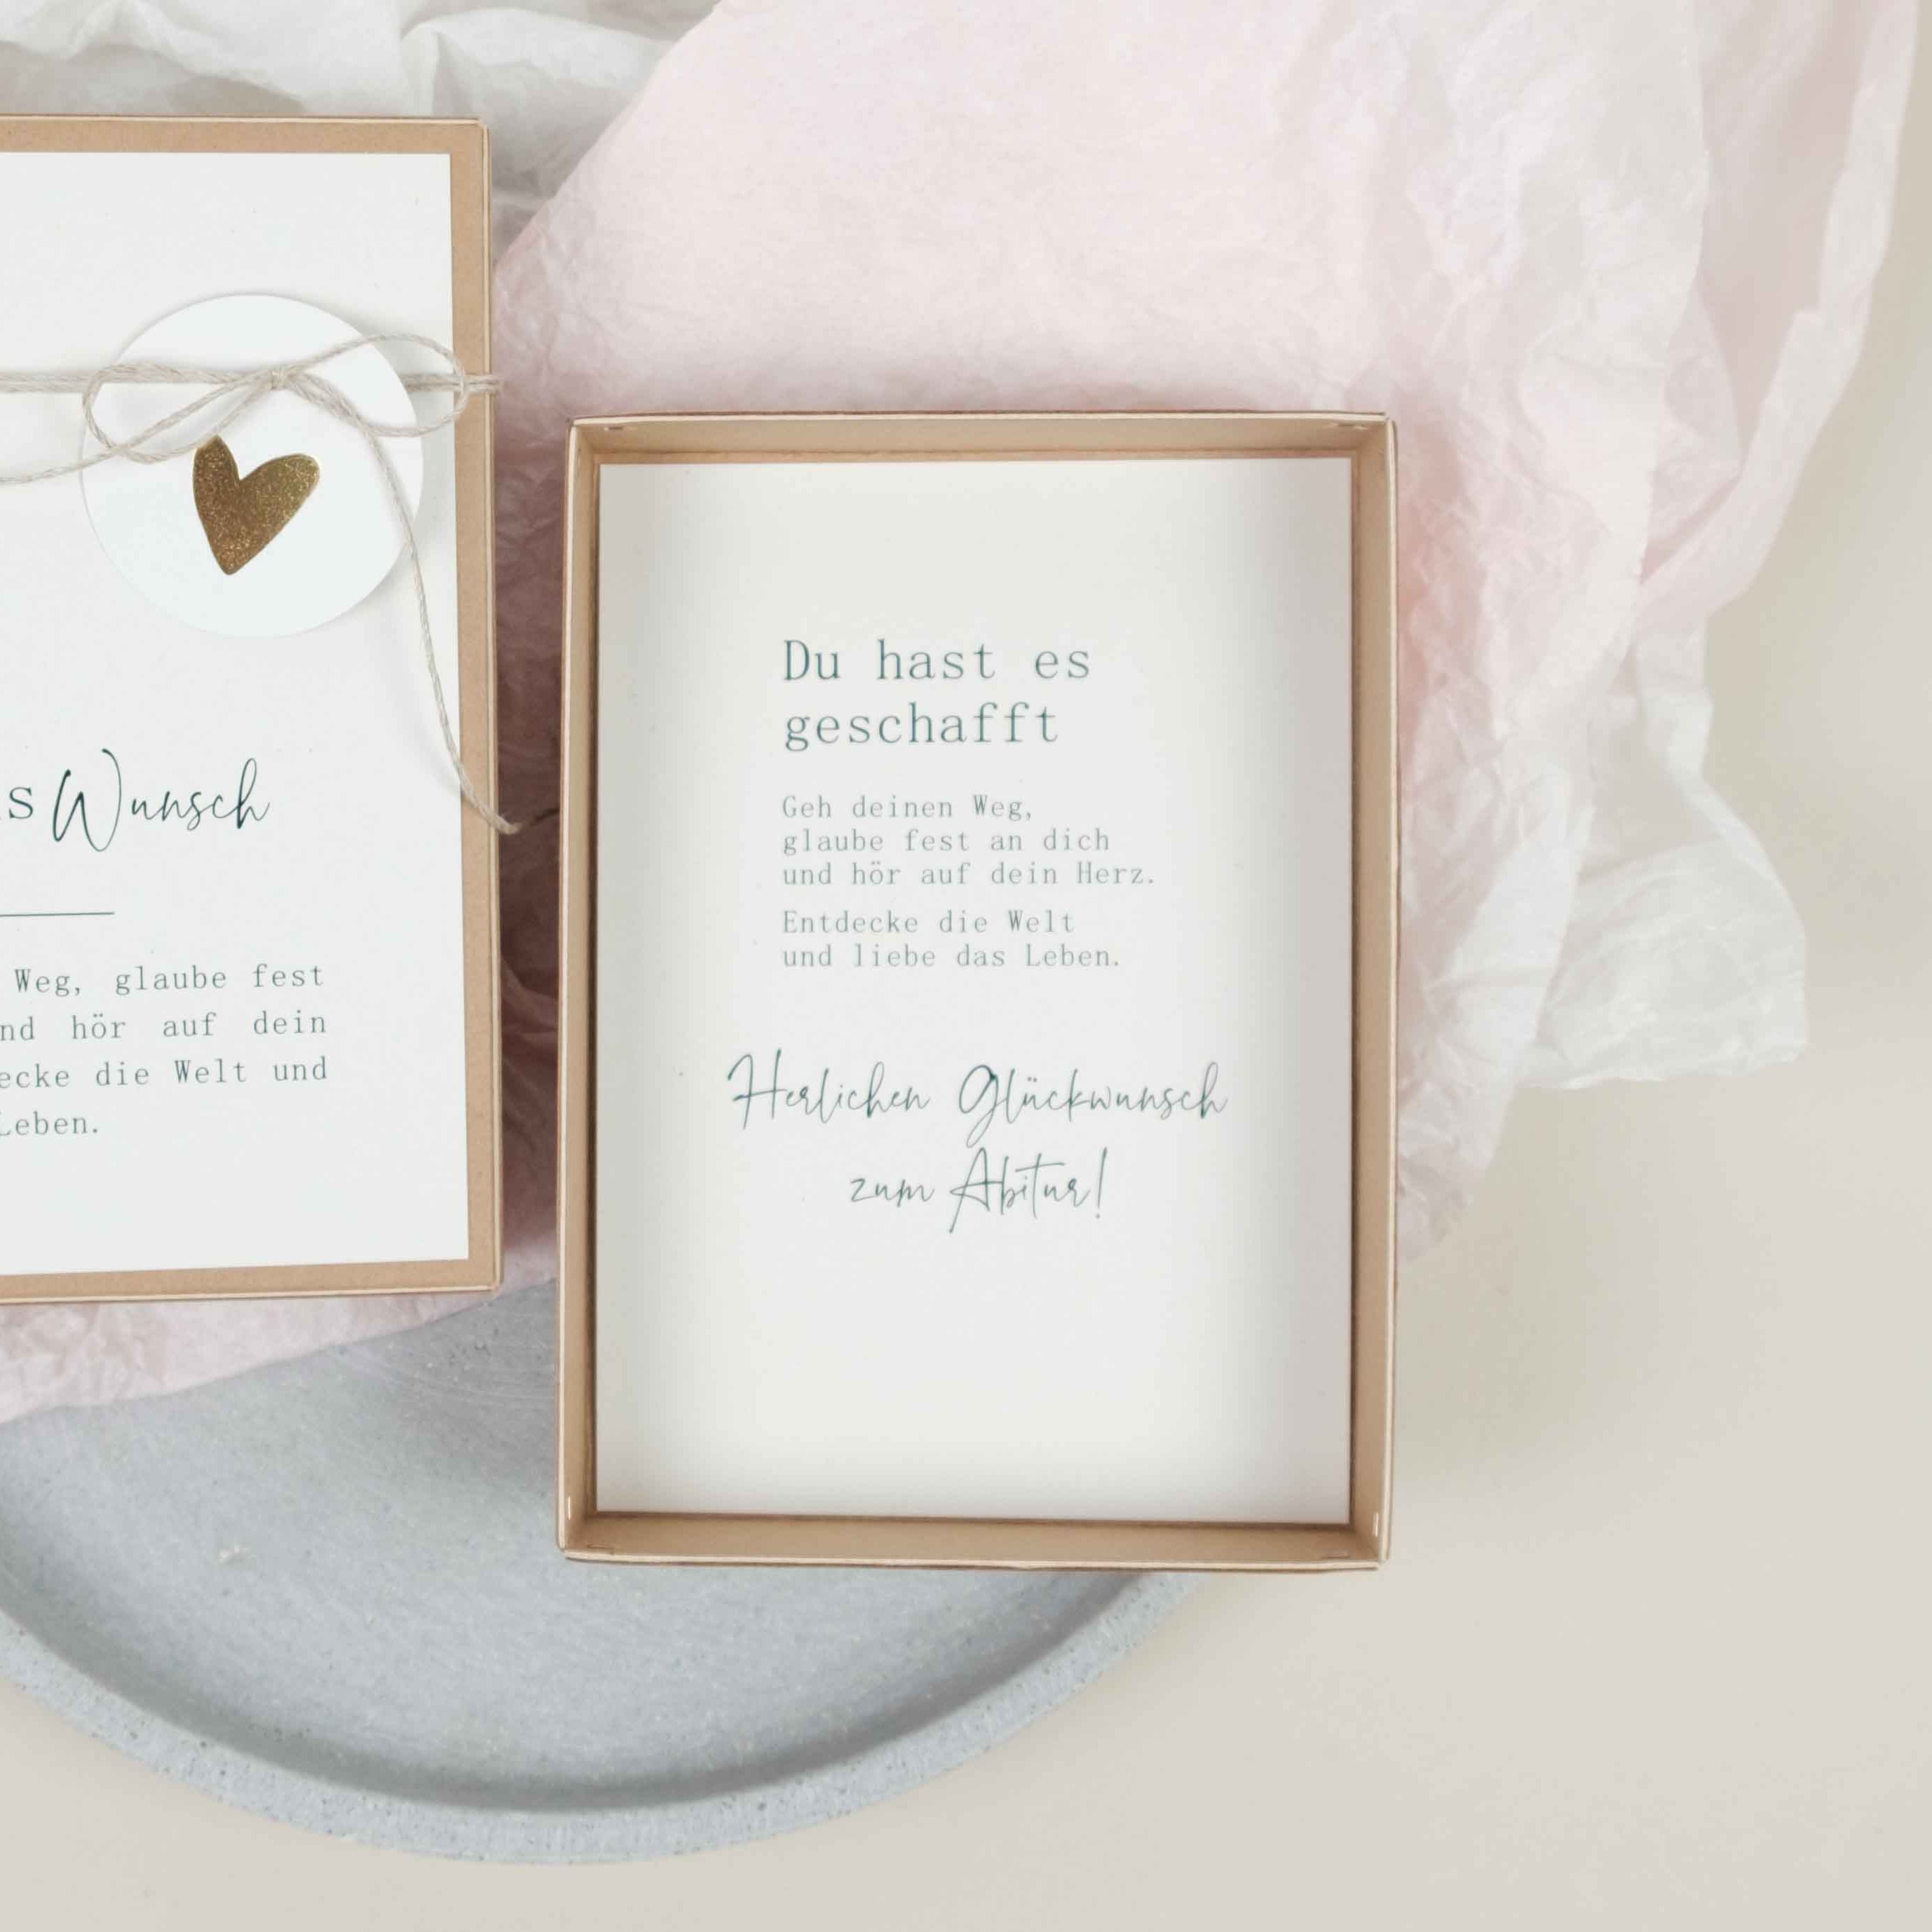 s Wunsch
Weg, glaube fest
nd hör auf dein
ecke die Welt und
Leben.
Du hast es
geschafft
Geh deinen Weg,
glaube fest an dich
und hör auf dein Herz.
Entdecke die Welt
und liebe das Leben.
Herlichen Glückwunsch
zum Abitur!